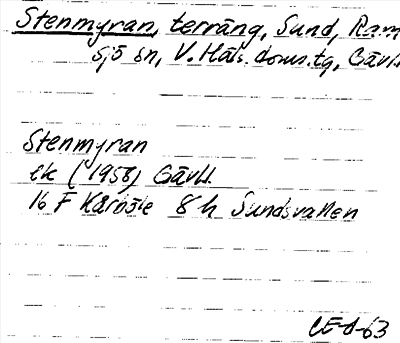 Stenmyran, terräng, Sund, Ram
sjö sn, V. Häls. doms.tg, Gävl.
Stenmyran
ek (1958) Gävl.
16 F Kårböle 8 h Sundsvallen
CE-d-63